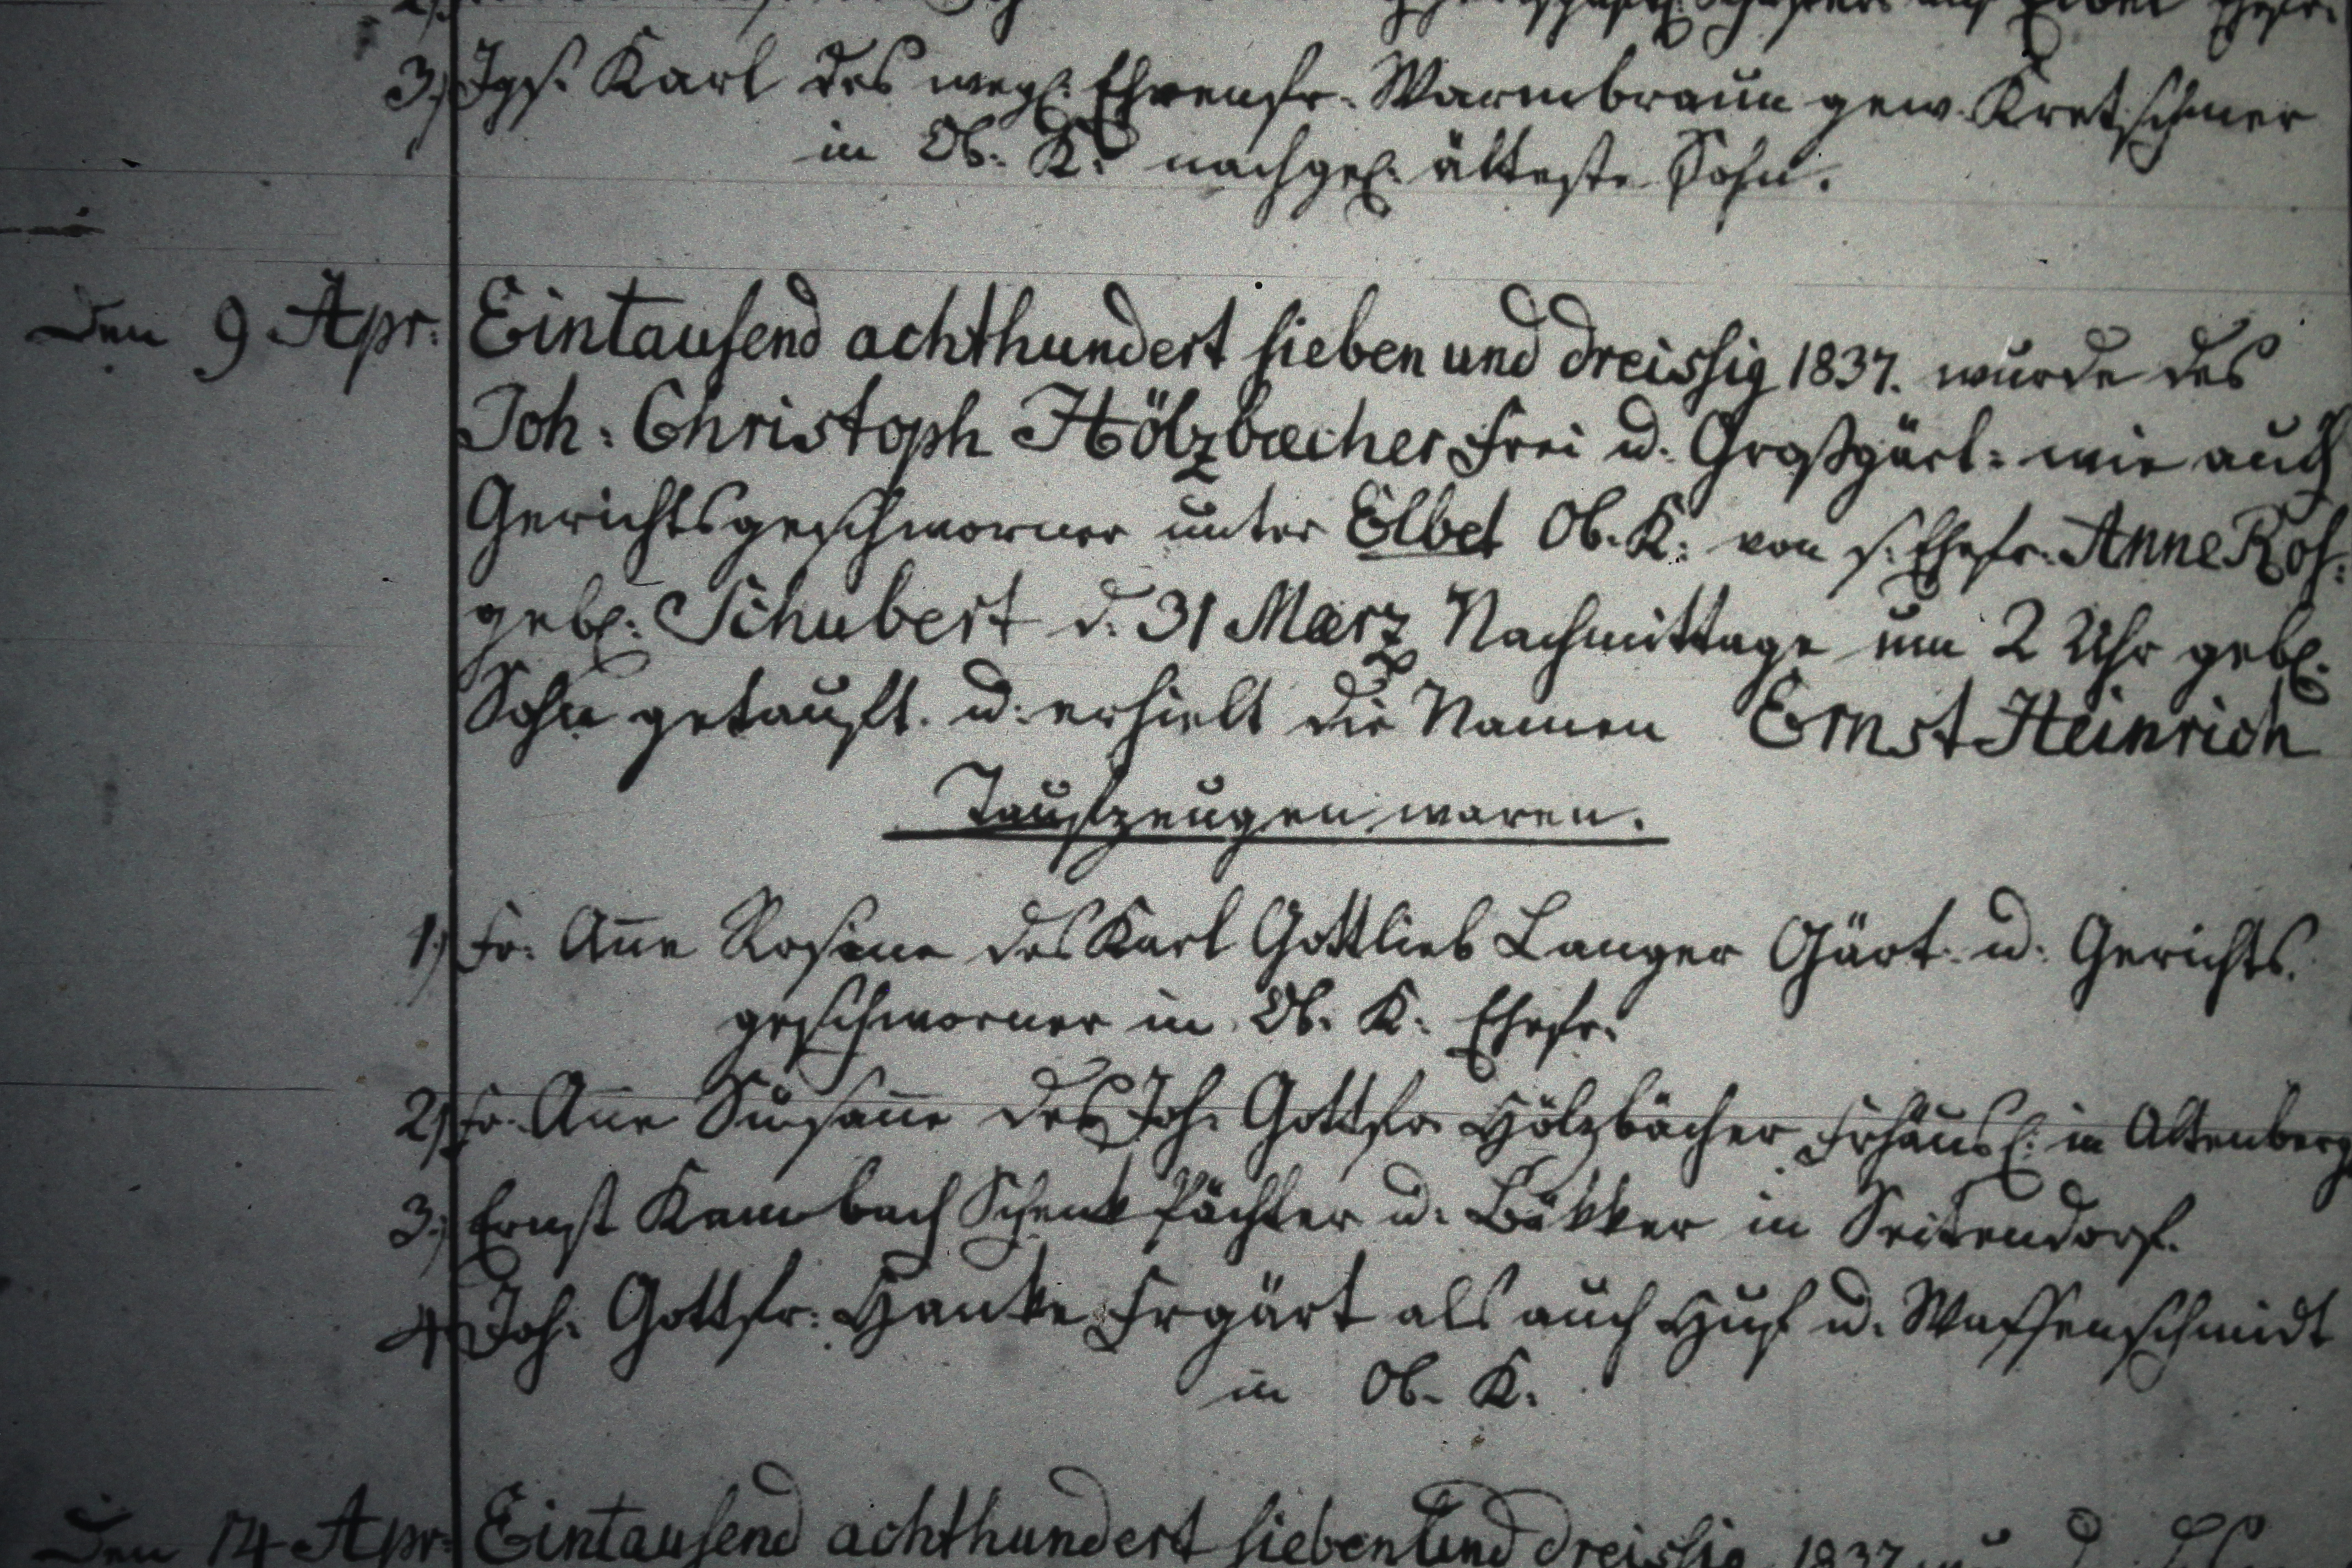 3.) Jgs. Karl des wegl. Ehrenfr. Warmbraun gew. Kretschmer
in Ob. K. nachgel. älteste Sohn.
Den 9 Apr. Eintausend achthundert sieben und dreissig 1837. wurde des
Joh: Christoph Hölzbæcher Frei u. Großgärt: wie auch
Gerichtsgeschworner unter Elbel Ob. K. von s. Ehefr. Anne Ros:
gebl: Schubert d. 31 Mærz Nachmittage um 2 Uhr gebl.
Sohn getauft. u. erhielt die Namen Ernst Heinrich
Taufzeugen waren.
1.) Fr. Anne Rosine des Karl Gottlieb Langer Gärt. u. Gerichts.
geschworner in Ob. K. Ehefr.
2.) Fr. Anne Susanne des Joh. Gottfr. Hölzbächer Frhäusl. in Altenberg
3.) Ernst Kambach Schenk Pächter u. Bäkker in Seitendorf.
4.) Joh. Gottfr. Hanke Frgärt als auch Huf u. Waffenschmidt
in Ob. K.
Den 14 Apr. Eintausend achthundert sieben und dreissig 1837